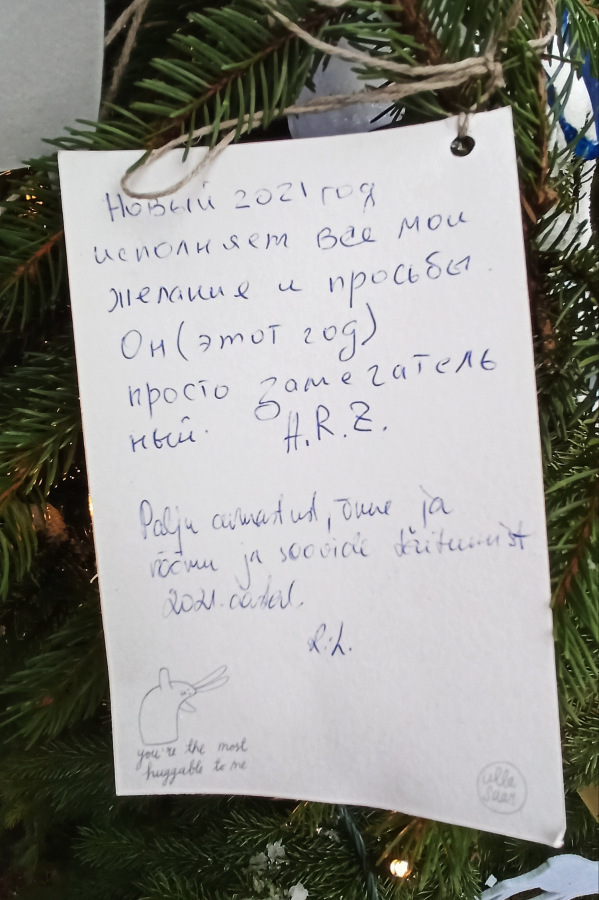 Новый 2021 год
исполняет все мои
желания и просьбы.
Он (этот год)
просто замечатель
ный.
H.R.Z.
Palju armastust, õnne ja
rõõmu ja soovide täitumist
2021. aastal.
R.L.
you're the most
huggable to me
ulla
saar